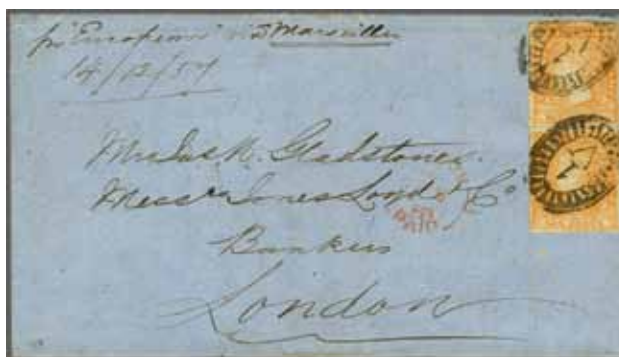 pr "European" via Marseilles
14/12/57
Gladstones.
Messrs Jones Loyd & Co
Bankers
London